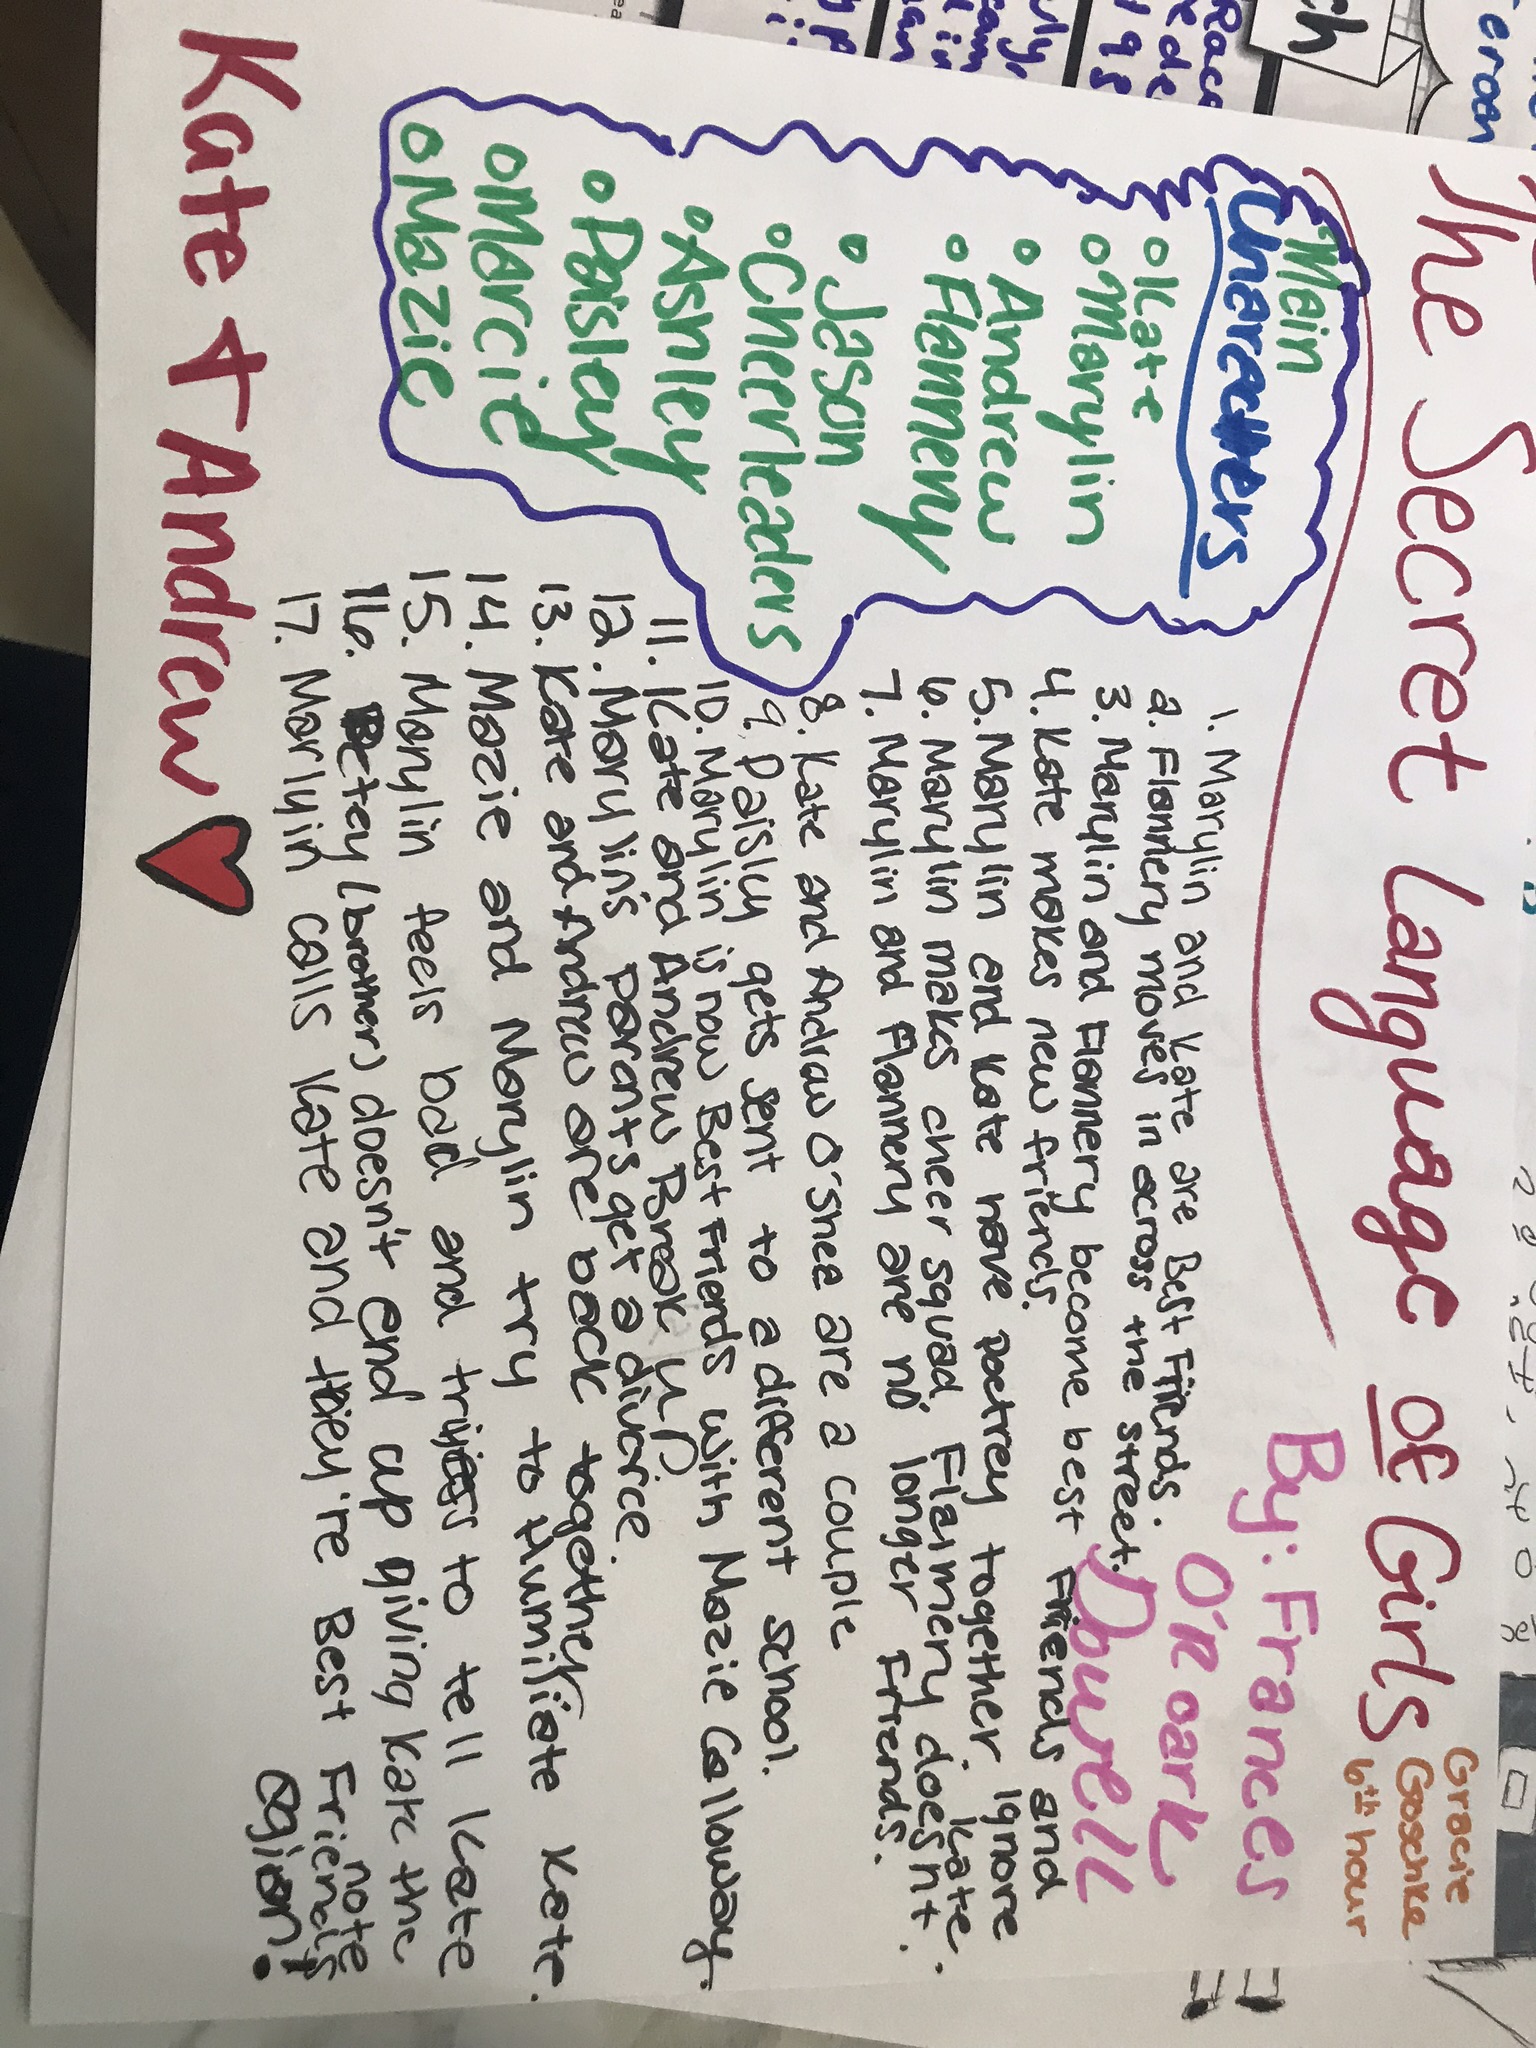 The Secret Language of Girls
Gracie
Gooschke
6th hour
By: Frances
O'Roark
Dowell
Main
Characters
Kate
Marylin
Andrew
Flannery
Jason
Cheerleaders
Ashley
Paisley
Marcie
Mazie
1. Marylin and Kate are Best Friends.
2. Flannery moves in across the street.
3. Marylin and Flannery become best Friends and
4. Kate makes new friends.
5. Marylin and Kate have poetrey together. Ignore Kate.
6. Marylin makes cheer squad, Flannery doesnt.
7. Marylin and Flannery are no longer Friends.
8. Kate and Andraw O'Shea are a couple
9. Paisly gets sent to a different school.
10. Marylin is now Best Friends with Mazie Calloway.
11. Kate and Andrew Break up
12. Marylin's parents get a divorice.
13. Kate and Andraw are back together
14. Mazie and Marylin try to Humiliate Kate.
15. Marylin feels bad and tries to tell Kate
16. Petey (brother) doesn't end up giving Kate the note
17. Marlyin calls Kate and they're Best Friends
again!
Kate + Andrew